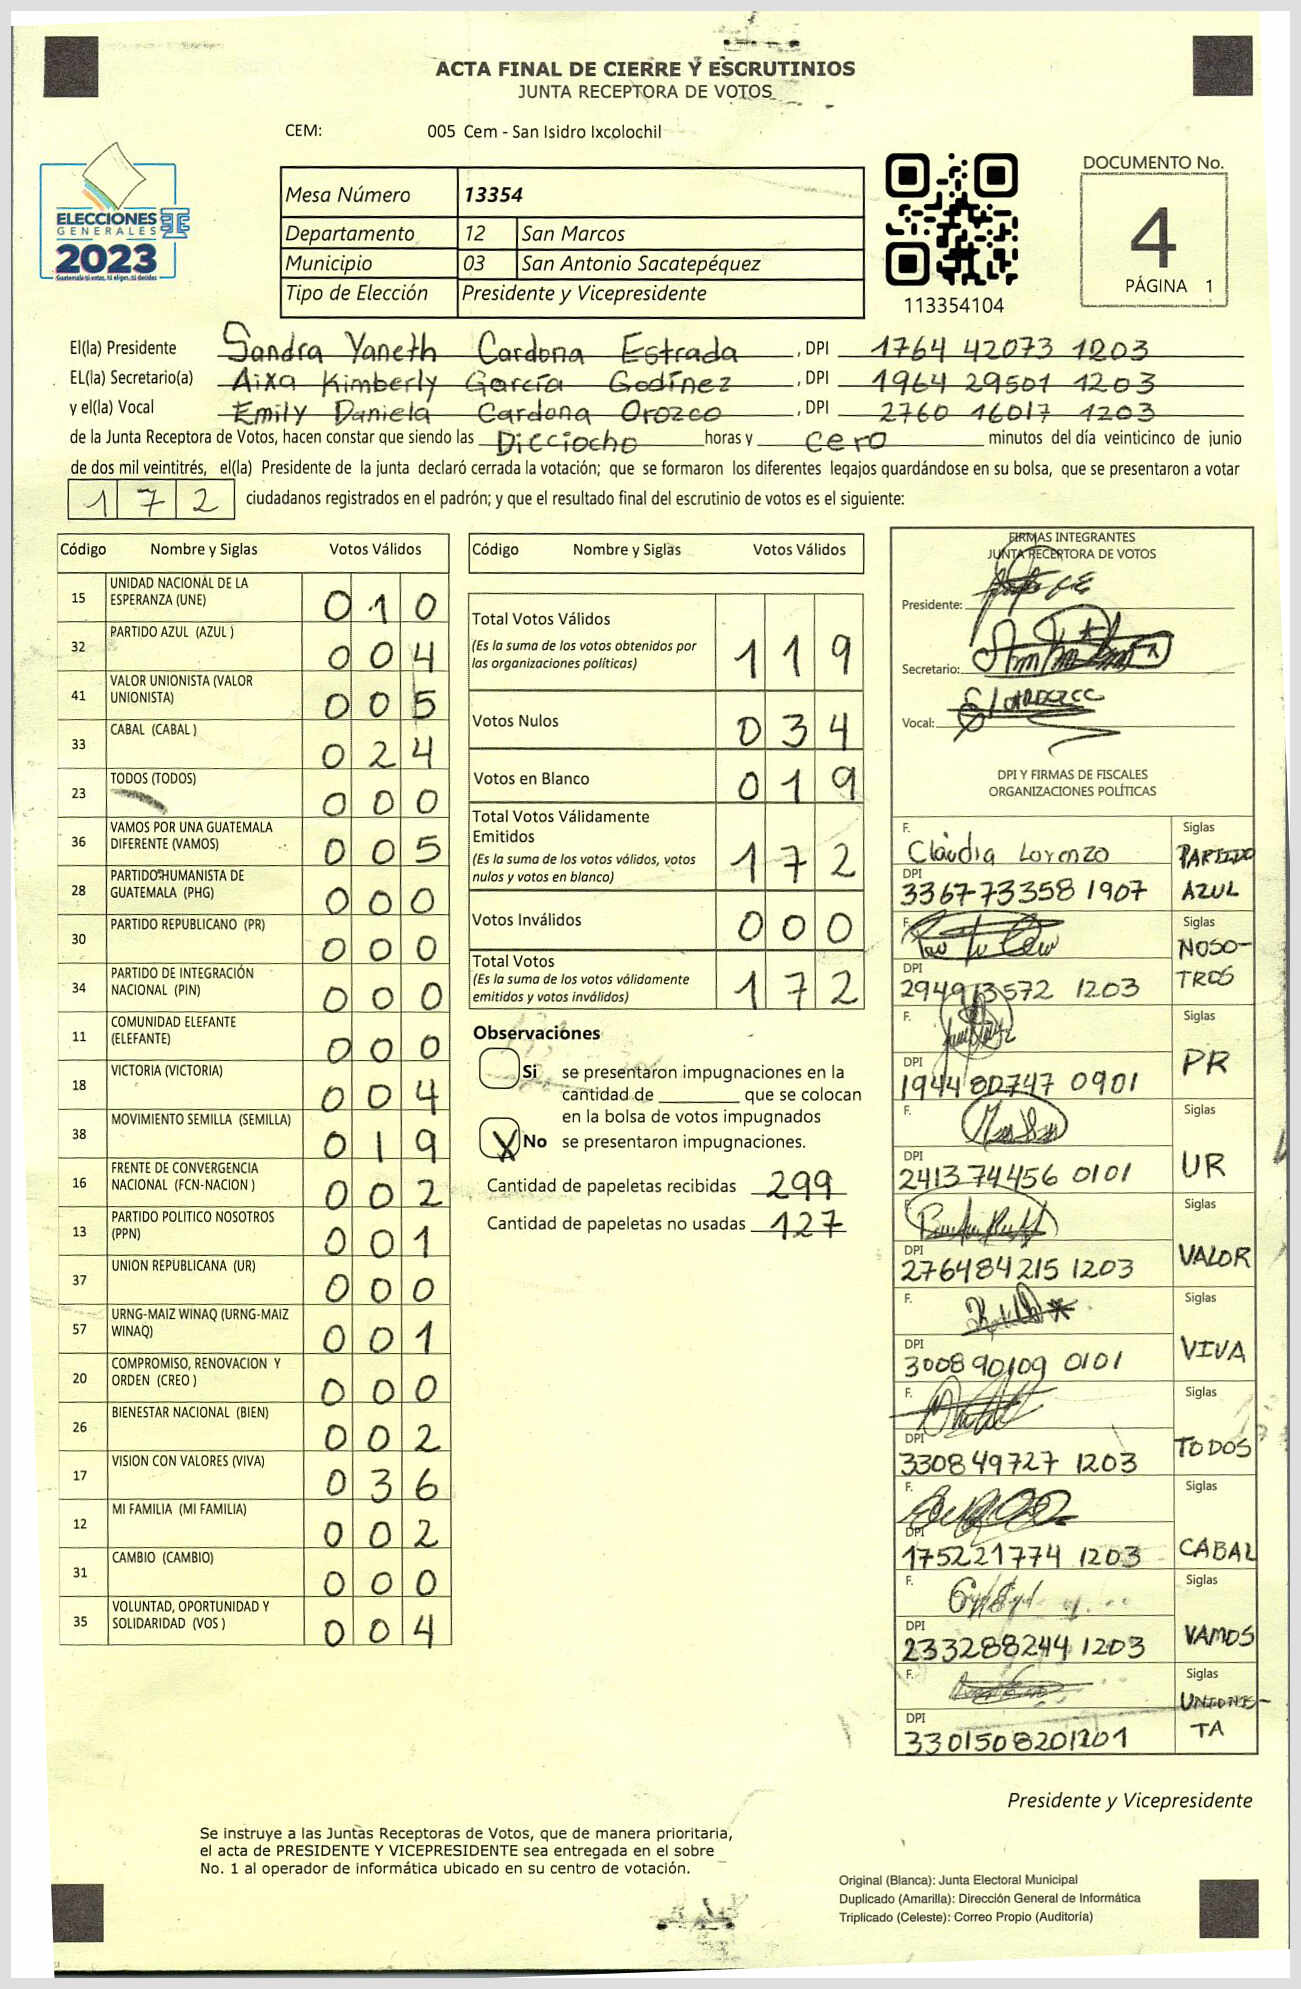 ACTA FINAL DE CIERRE Y ESCRUTINIOS
JUNTA RECEPTORA DE VOTOS
CEM: 005 Cem - San Isidro Ixcolochil
ELECCIONES
GENERALES
2023
Guatemala: tú votas, tú eliges, tú decides
Mesa Número 13354
Departamento 12 San Marcos
Municipio 03 San Antonio Sacatepéquez
Tipo de Elección Presidente y Vicepresidente
113354104
DOCUMENTO No.
4
PÁGINA 1
El(la) Presidente Sandra Yaneth Cardona Estrada, DPI 1764 42073 1203
EL(la) Secretario(a) Aixa Kimberly García Godínez, DPI 1964 29501 1203
y el(la) Vocal Emily Daniela Cardona Orozco, DPI 2760 16017 1203
de la Junta Receptora de Votos, hacen constar que siendo las Dicciocho horas y cero minutos del día veinticinco de junio
de dos mil veintitrés, el(la) Presidente de la junta declaró cerrada la votación; que se formaron los diferentes legajos guardándose en su bolsa, que se presentaron a votar
172 ciudadanos registrados en el padrón; y que el resultado final del escrutinio de votos es el siguiente:
Código Nombre y Siglas Votos Válidos
15 UNIDAD NACIONAL DE LA ESPERANZA (UNE) 010
32 PARTIDO AZUL (AZUL ) 004
41 VALOR UNIONISTA (VALOR UNIONISTA) 005
33 CABAL (CABAL ) 024
23 TODOS (TODOS) 000
36 VAMOS POR UNA GUATEMALA DIFERENTE (VAMOS) 005
28 PARTIDO HUMANISTA DE GUATEMALA (PHG) 000
30 PARTIDO REPUBLICANO (PR) 000
34 PARTIDO DE INTEGRACIÓN NACIONAL (PIN) 000
11 COMUNIDAD ELEFANTE (ELEFANTE) 000
18 VICTORIA (VICTORIA) 004
38 MOVIMIENTO SEMILLA (SEMILLA) 019
16 FRENTE DE CONVERGENCIA NACIONAL (FCN-NACION ) 002
13 PARTIDO POLITICO NOSOTROS (PPN) 001
37 UNION REPUBLICANA (UR) 000
57 URNG-MAIZ WINAQ (URNG-MAIZ WINAQ) 001
20 COMPROMISO, RENOVACION Y ORDEN (CREO ) 000
26 BIENESTAR NACIONAL (BIEN) 002
17 VISION CON VALORES (VIVA) 036
12 MI FAMILIA (MI FAMILIA) 002
31 CAMBIO (CAMBIO) 000
35 VOLUNTAD, OPORTUNIDAD Y SOLIDARIDAD (VOS ) 004
Código Nombre y Siglas Votos Válidos
Total Votos Válidos 119
(Es la suma de los votos obtenidos por
las organizaciones políticas)
Votos Nulos 034
Votos en Blanco 019
Total Votos Válidamente
Emitidos 172
(Es la suma de los votos válidos, votos
nulos y votos en blanco)
Votos Inválidos 000
Total Votos 172
(Es la suma de los votos válidamente
emitidos y votos inválidos)
Observaciones
Si se presentaron impugnaciones en la
cantidad de ________ que se colocan
en la bolsa de votos impugnados
X No se presentaron impugnaciones.
Cantidad de papeletas recibidas 299
Cantidad de papeletas no usadas 127
FIRMAS INTEGRANTES
JUNTA RECEPTORA DE VOTOS
Presidente:
Secretario:
Vocal:
DPI Y FIRMAS DE FISCALES
ORGANIZACIONES POLÍTICAS
F. Claudia Lorenzo Siglas PARTIDO AZUL
DPI 336773358 1907
F. Siglas NOSO-TROS
DPI 294913572 1203
F. Siglas PR
DPI 194480747 0901
F. Siglas UR
DPI 241374456 0101
F. Siglas VALOR
DPI 276484215 1203
F. Siglas VIVA
DPI 300890109 0101
F. Siglas TODOS
DPI 330849727 1203
F. Siglas CABAL
DPI 175221774 1203
F. Siglas VAMOS
DPI 233288244 1203
F. Siglas UNIONIS-TA
DPI 3301508201201
Presidente y Vicepresidente
Se instruye a las Juntas Receptoras de Votos, que de manera prioritaria,
el acta de PRESIDENTE Y VICEPRESIDENTE sea entregada en el sobre
No. 1 al operador de informática ubicado en su centro de votación.
Original (Blanca): Junta Electoral Municipal
Duplicado (Amarilla): Dirección General de Informática
Triplicado (Celeste): Correo Propio (Auditoría)